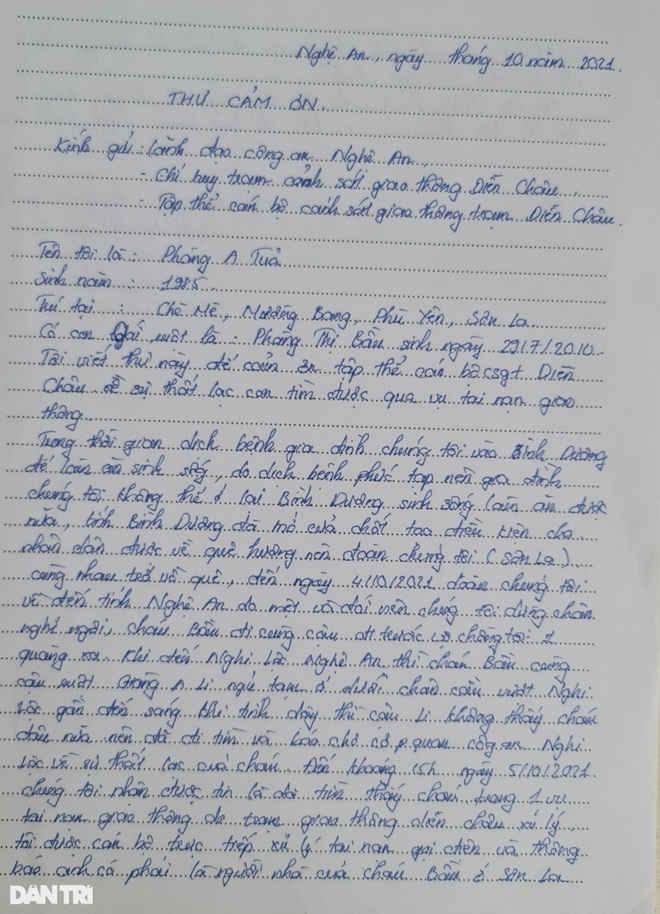 Nghệ An, ngày tháng 10 năm 2021.
THƯ CẢM ƠN.
Kính gửi: Lãnh đạo công an Nghệ An.
- Chỉ huy trạm cảnh sát giao thông Diễn Châu.
- Tập thể cán bộ cảnh sát giao thông trạm Diễn Châu.
Tên tôi là: Pháng A Tuả
Sinh năm: 1985.
Trú tại: Chè Mè, Mường Bang, Phù Yên, Sơn La
Có con gái mất là: Phang Thị Bầu sinh ngày 29/7/2010.
Tôi viết thư này để cảm ơn tập thể cán bộ csgt Diễn
Châu về sự thất lạc con tìm được qua vụ tai nạn giao
thông.
Trong thời gian dịch bệnh gia đình chúng tôi vào Bình Dương
để làm ăn sinh sống, do dịch bệnh phức tạp nên gia đình
chúng tôi không thể ở lại Bình Dương sinh sống làm ăn được
nữa, tỉnh Bình Dương đã mở cửa chốt tạo điều kiện cho
nhân dân được về quê hương nên đoàn chúng tôi (Sơn La)
cùng nhau trở về quê, đến ngày 4/10/2021 đoàn chúng tôi
về đến tỉnh Nghệ An do mệt và đói nên chúng tôi dừng chân
nghỉ ngơi, cháu Bầu đi cùng cậu đi trước vợ chồng tôi 1
quãng xa. Khi đến Nghi Lộc Nghệ An thì cháu Bầu cùng
cậu ruột Giàng A Li ngủ tạm ở dưới chân cầu vượt Nghi
Lộc gần đến sáng khi tỉnh dậy thì cậu Li không thấy cháu
đâu nữa nên đã đi tìm và báo cho cơ quan công an Nghi
Lộc về sự thất lạc của cháu. Đến khoảng 15h ngày 5/10/2021.
chúng tôi nhận được tin là đã tìm thấy cháu trong 1 vụ
tai nạn giao thông do trạm giao thông diễn châu xử lý.
tôi được cán bộ trực tiếp xử lý tai nạn gọi điện và thông
báo anh có phải là người nhà của cháu Bầu ở Sơn La
DÂN TRÍ